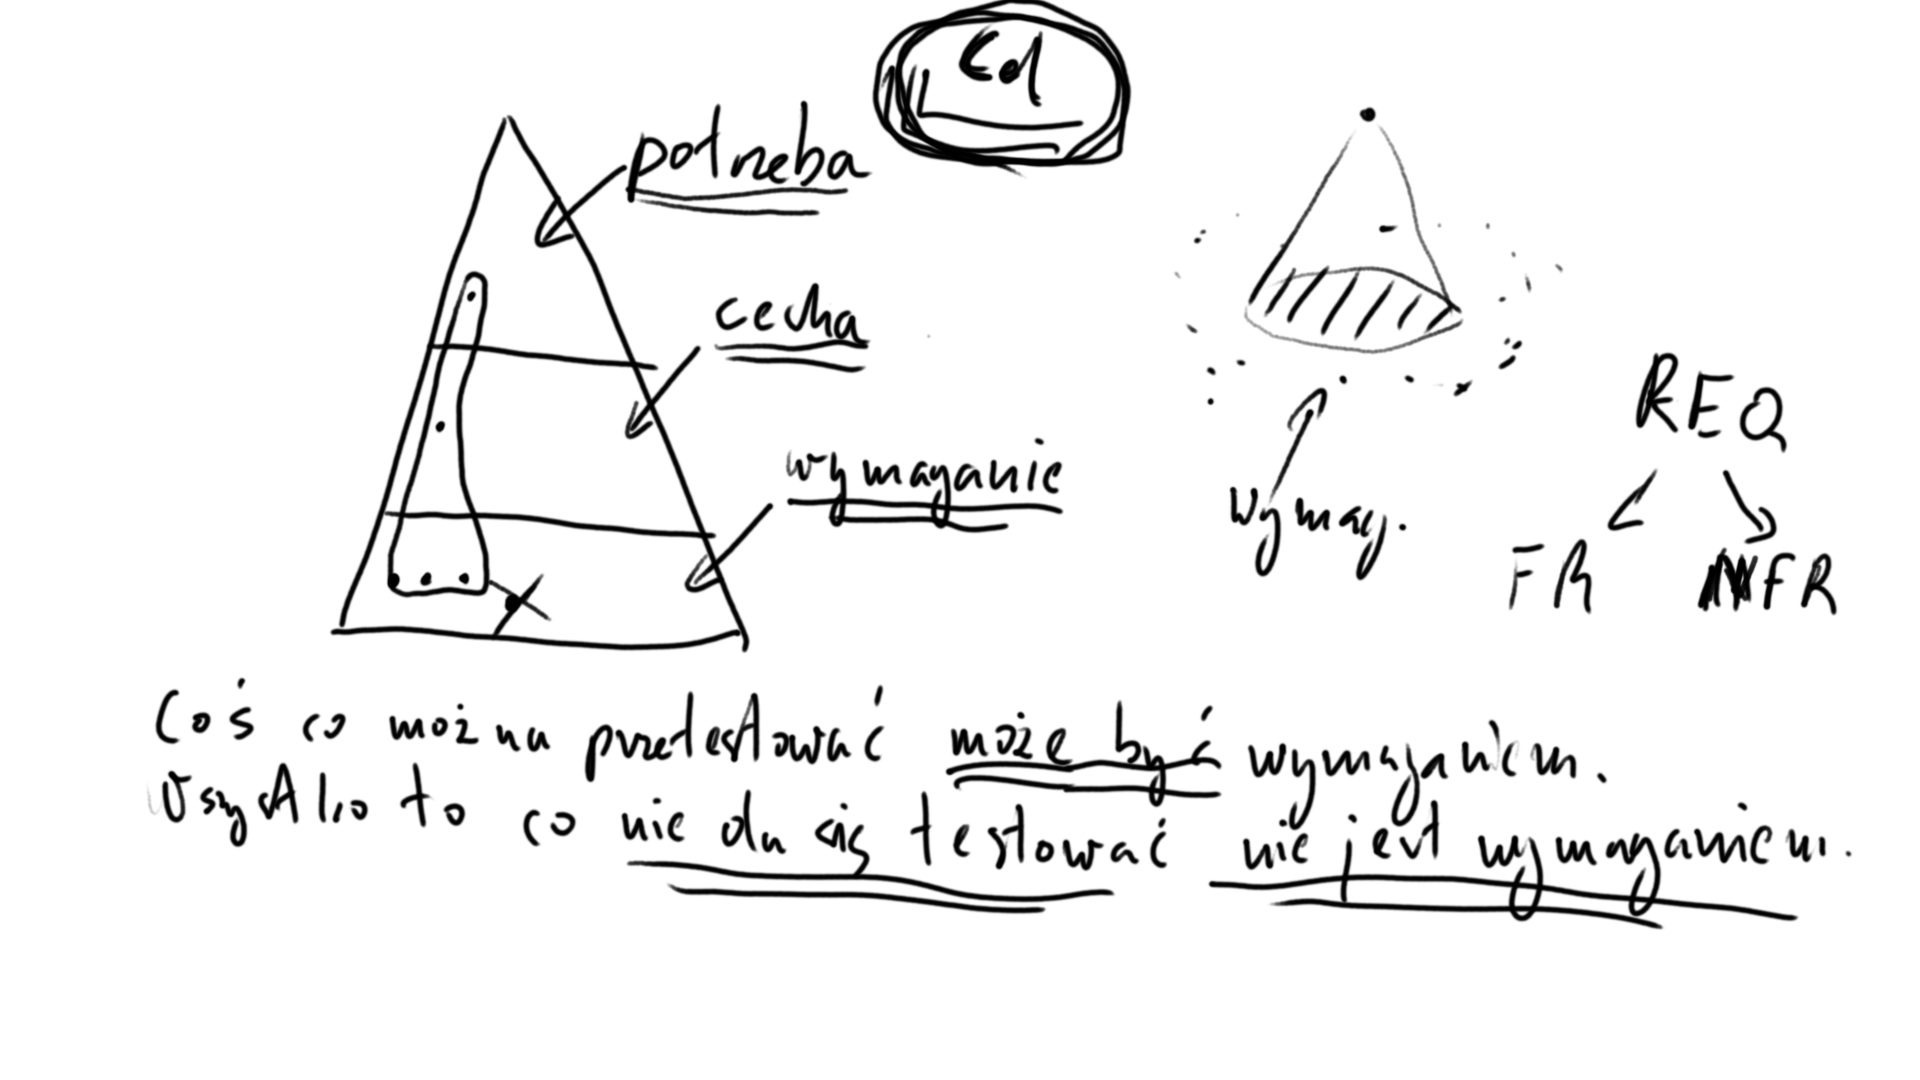 Cel
potrzeba
cecha
wymaganie
wymag.
REQ
FR NFR
Coś co można przetestować może być wymaganiem.
Wszystko to co nie da się testować nie jest wymaganiem.